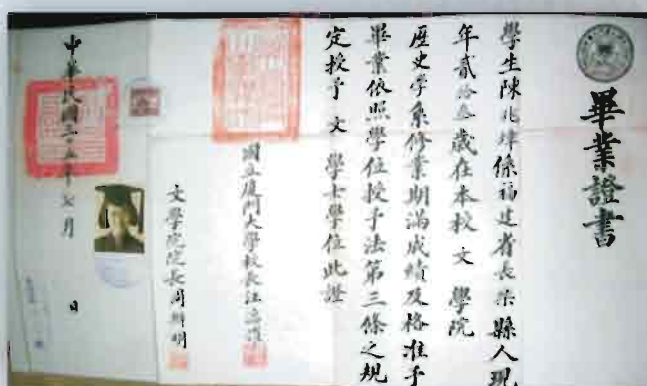 畢業證書
學生陳兆璋係福建省長樂縣人現
年貳拾叁歲在本校 文 學院
歷史學系修業期滿成績及格准予
畢業依照學位授予法第三條之規
定授予 文 學士學位此證
國立廈門大學校長汪德耀
文學院院長周辨明
中華民國三十五年七月 日